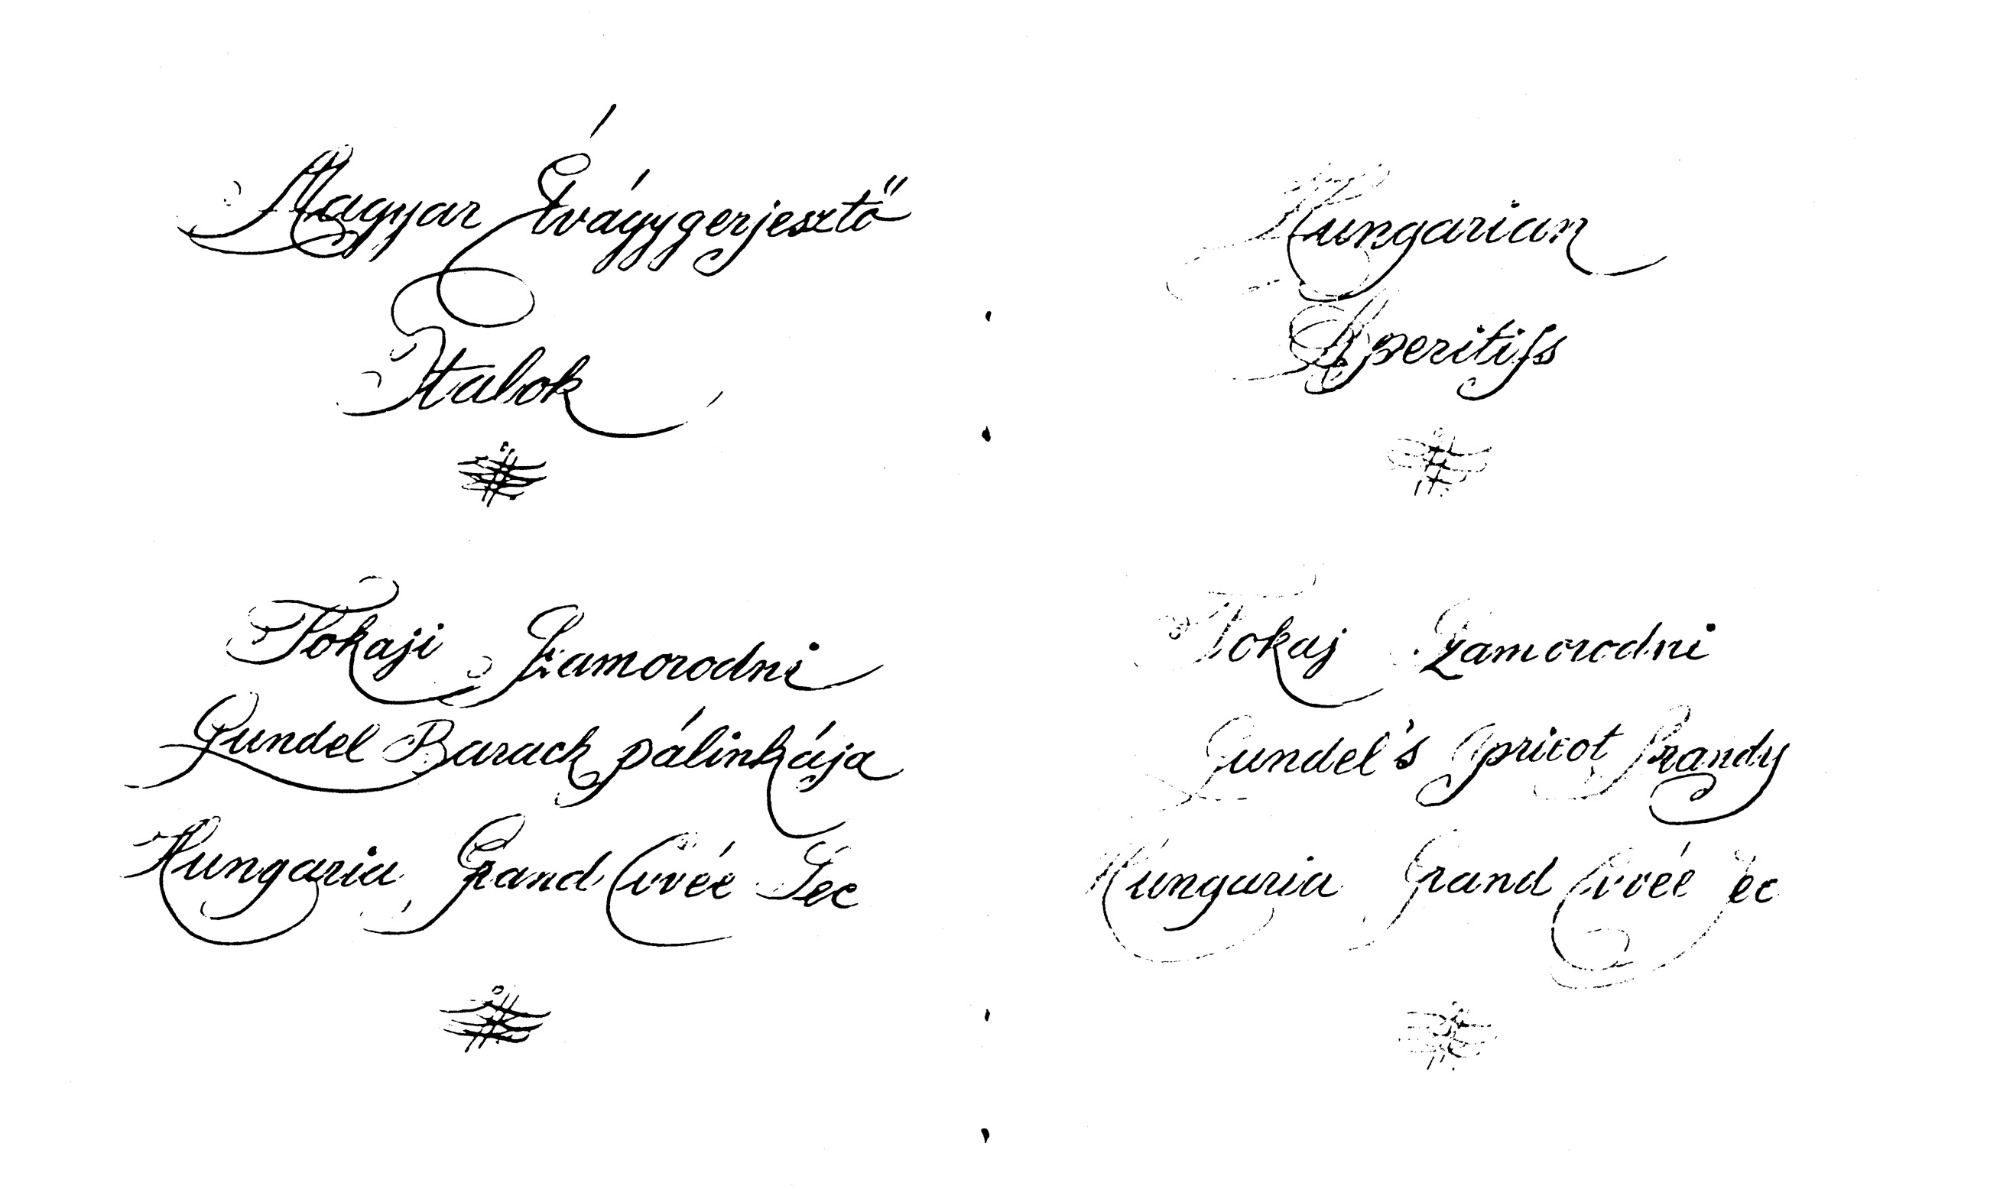 Magyar Étvágygerjesztő
Italok
Tokaji Szamorodni
Gundel Barack pálinkája
Hungaria Grand Cuvée Sec
Hungarian
Aperitifs
Tokaj Szamorodni
Gundel's Apricot Brandy
Hungaria Grand Cuvée Sec